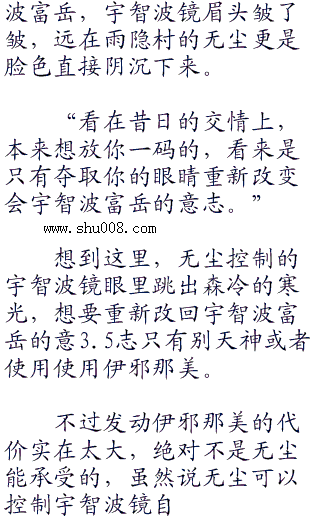 波富岳，宇智波镜眉头皱了
皱，远在雨隐村的无尘更是
脸色直接阴沉下来。
“看在昔日的交情上，
本来想放你一码的，看来是
只有夺取你的眼睛重新改变
会宇智波富岳的意志。”
www.shu008.com
想到这里，无尘控制的
宇智波镜眼里跳出森冷的寒
光，想要重新改回宇智波富
岳的意3.5志只有别天神或者
使用使用伊邪那美。
不过发动伊邪那美的代
价实在太大，绝对不是无尘
能承受的，虽然说无尘可以
控制宇智波镜自